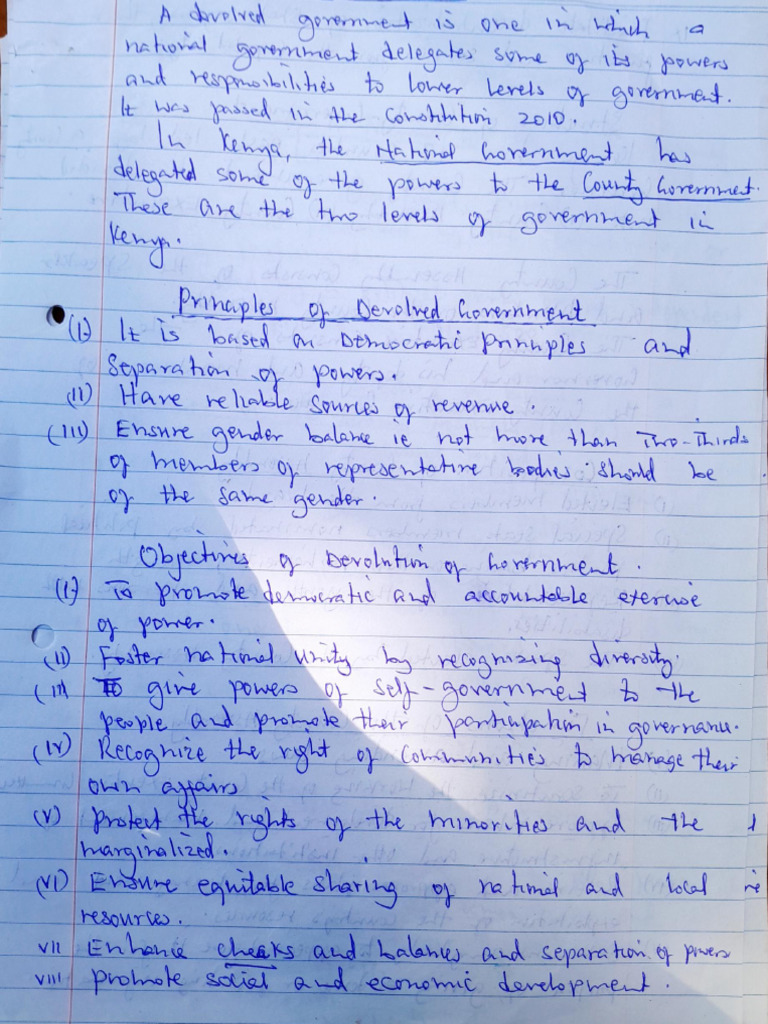 A devolved government is one in which a
national government delegates some of its powers
and responsibilities to lower levels of government.
It was passed in the Constitution 2010.
In Kenya, the National Government has
delegated some of the powers to the County Government.
These are the two levels of government in
Kenya.
Principles of Devolved Government
(i) It is based on Democratic Principles and
Separation of powers.
(ii) Have reliable sources of revenue.
(iii) Ensure gender balance ie not more than Two-Thirds
of members of representative bodies should be
of the same gender.
Objectives of Devolution of Government.
(i) To promote democratic and accountable exercise
of power.
(ii) Foster national unity by recognising diversity.
(iii) To give powers of self-government to the
people and promote their participation in governance.
(iv) Recognize the right of communities to manage their
own affairs
(v) Protect the rights of the minorities and the
marginalized.
(vi) Ensure equitable sharing of national and local
resources.
vii Enhance checks and balances and separation of powers
viii promote social and economic development.